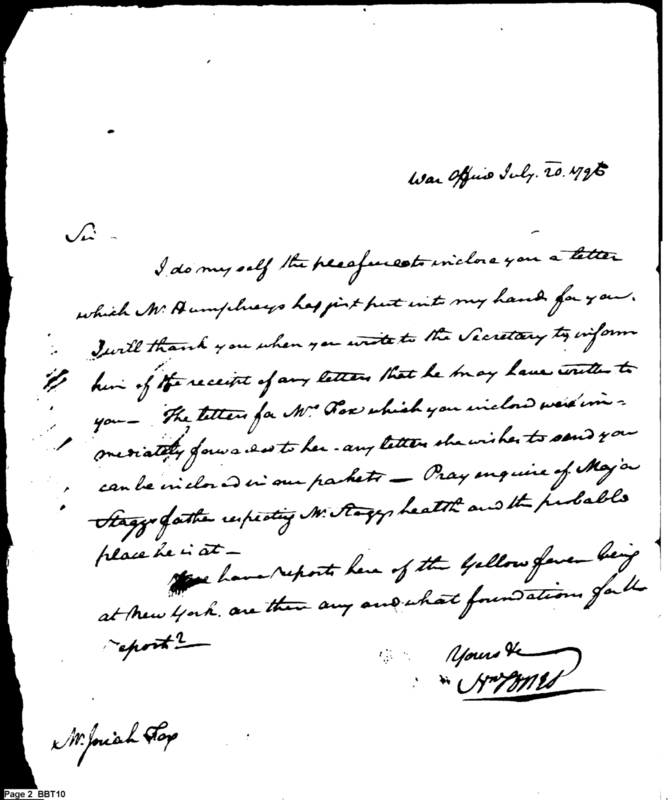 War Office July. 20. 1796
Sir
I do my self the pleasure to inclose you a letter
which Mr. Humphreys has just put into my hands for you.
I will thank you when you write to the Secretary to inform
him of the receipt of any letters that he may have written to
you — The letters for Mrs. Fox which you inclosed were im=
mediately forwarded to her - any letters she wishes to send you
can be inclosed in our packets — Pray enquire of Major
Staggs father respecting Mr. Staggs health and the probable
place he is at —
We have reports here of the Yellow fever being
at New York. are there any and what foundations for the
report?
Yours &c
Jones
Mr. Josiah Fox
Page 2 BBT10